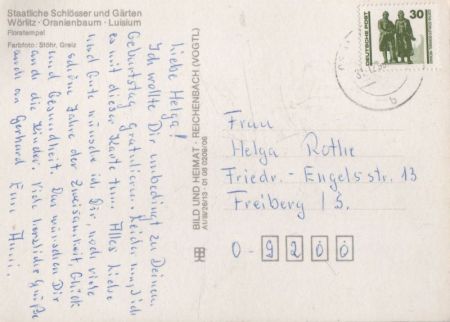 Staatliche Schlösser und Gärten
Wörlitz · Oranienbaum · Luisium
Floratempel
Farbfoto: Stöhr, Greiz
Liebe Helga!
Ich wollte Dir unbedingt zu Deinem
Geburtstag gratulieren. Leider muß ich
es mit dieser Karte tun. Alles Liebe
und Gute wünsche ich Dir, noch viele
schöne Jahre der Zweisamkeit, Glück
und Gesundheit. Das wünschen Dir
auch die Kinder. Viele herzliche Grüße
auch von Gerhard Eure
BILD UND HEIMAT · REICHENBACH (VOGTL)
DEUTSCHE POST
30
Frau
Helga Rothe
Friedr.-Engelsstr. 13
Freiberg / S.
O-9200
b